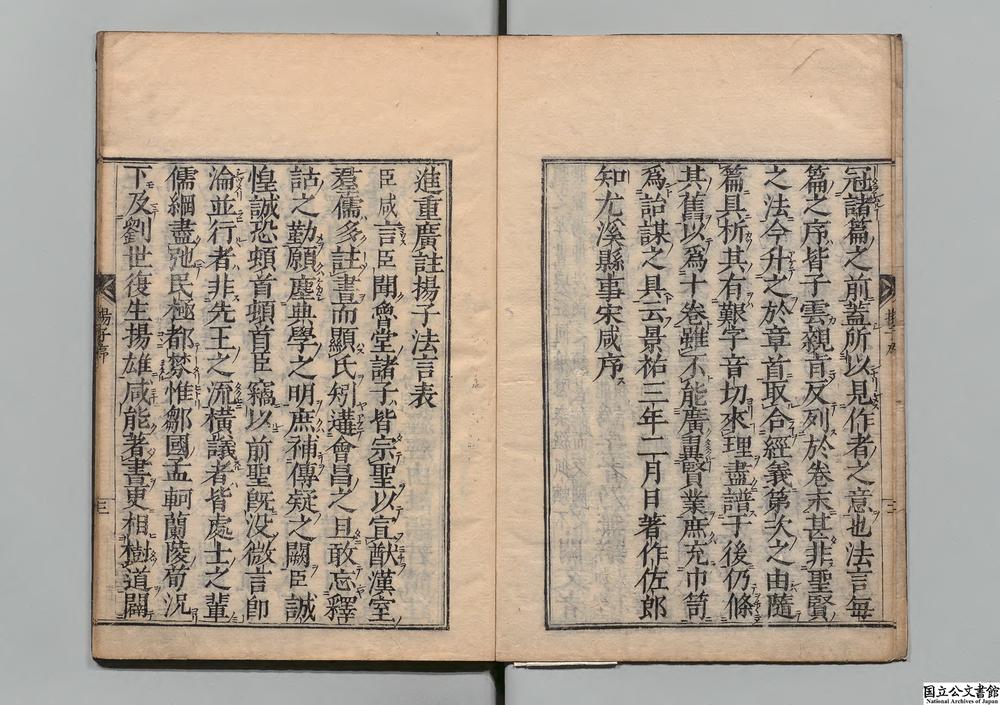 冠諸篇之前蓋所以見作者之意也法言每
篇之序皆子雲親旨反列於卷末甚非聖賢
之法今升之於章首取合經義第次之由隨
篇具析其有艱字音切來理盡譜于後仍條
其舊以爲十卷雖不能廣異賢業庶充巾笥
爲詒謀之具云景祐三年二月日著作佐郎
知尤溪縣事宋咸序
進重廣註揚子法言表
臣咸言臣聞曾堂諸子皆宗聖以宣猷漢室
羣儒多註書而顯氏矧遘會昌之旦敢忘釋
詁之勤願塵典學之明庶補傳疑之闕臣誠
惶誠恐頓首頓首臣竊以前聖既没微言即
淪並行者非先王之流橫議者皆處士之輩
儒綱盡弛民極都棼惟鄒國孟軻蘭陵荀况
下及劉世復生揚雄咸能著書更相樹道闢
三
国立公文書館
National Archives of Japan